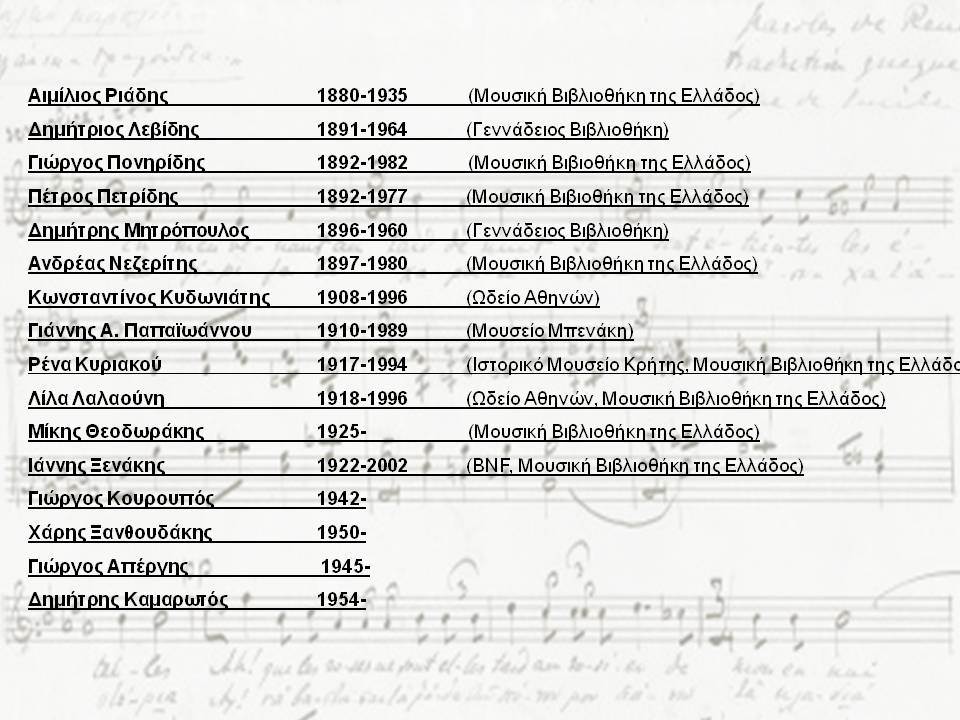 Αιμίλιος Ριάδης 1880-1935 (Μουσική Βιβλιοθήκη της Ελλάδος)
Δημήτριος Λεβίδης 1891-1964 (Γεννάδειος Βιβλιοθήκη)
Γιώργος Πονηρίδης 1892-1982 (Μουσική Βιβιοθήκη της Ελλάδος)
Πέτρος Πετρίδης 1892-1977 (Μουσική Βιβιοθήκη της Ελλάδος)
Δημήτρης Μητρόπουλος 1896-1960 (Γεννάδειος Βιβλιοθήκη)
Ανδρέας Νεζερίτης 1897-1980 (Μουσική Βιβλιοθήκη της Ελλάδος)
Κωνσταντίνος Κυδωνιάτης 1908-1996 (Ωδείο Αθηνών)
Γιάννης Α. Παπαϊωάννου 1910-1989 (Μουσείο Μπενάκη)
Ρένα Κυριακού 1917-1994 (Ιστορικό Μουσείο Κρήτης, Μουσική Βιβλιοθήκη της Ελλάδο
Λίλα Λαλαούνη 1918-1996 (Ωδείο Αθηνών, Μουσική Βιβλιοθήκη της Ελλάδος)
Μίκης Θεοδωράκης 1925- (Μουσική Βιβλιοθήκη της Ελλάδος)
Ιάννης Ξενάκης 1922-2002 (BNF, Μουσική Βιβλιοθήκη της Ελλάδος)
Γιώργος Κουρουπός 1942-
Χάρης Ξανθουδάκης 1950-
Γιώργος Απέργης 1945-
Δημήτρης Καμαρωτός 1954-